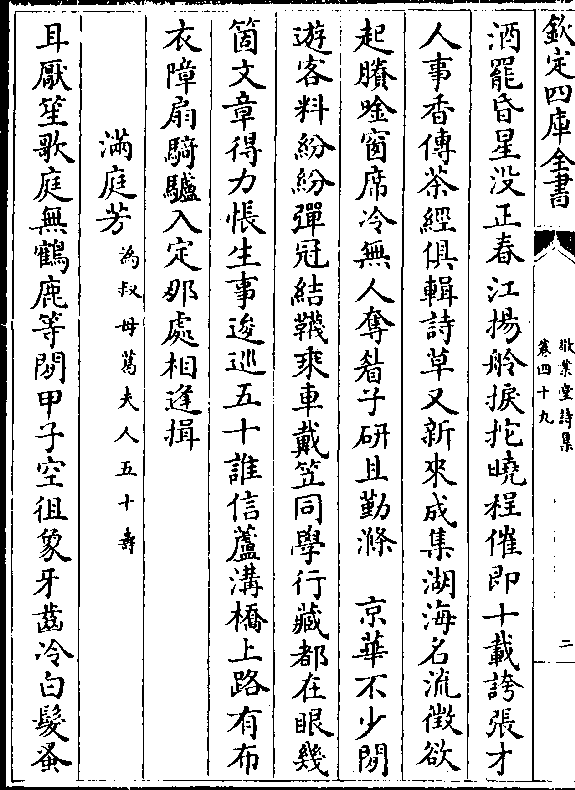 欽定四庫全書
敬業堂詩集
卷四十九
二
酒罷昏星没正春江揚舲捩柁曉程催即十載誇張才
人事香傳茶經俱輯詩草又新來成集湖海名流徴欲
起賸唫窗席冷無人奪㸔子研且勤滌　京華不少閒
遊客料紛紛彈冠結韈乘車戴笠同學行藏都在眼幾
箇文章得力悵生事逡巡五十誰信蘆溝橋上路有布
衣障扇騎驢入定那處相逢揖
滿庭芳
為叔母葛夫人五十壽
耳厭笙歌庭無鶴鹿等閒甲子空徂象牙齒冷白髮蚤